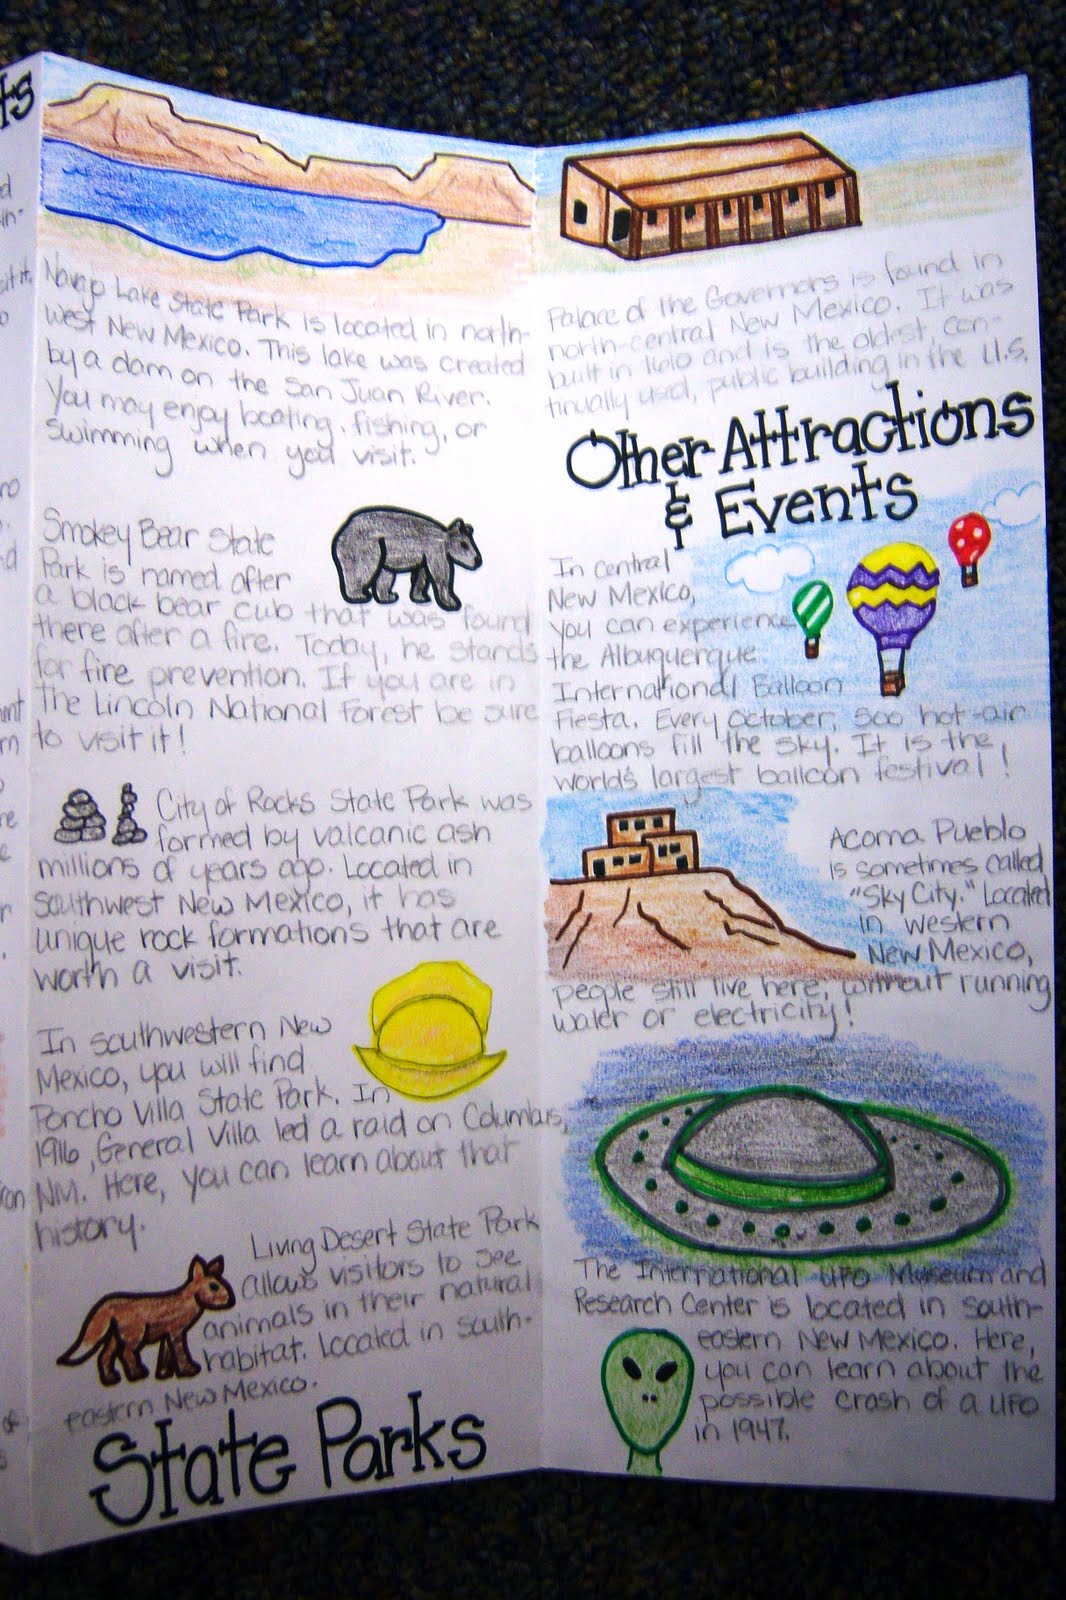 Navajo Lake State Park is located in north-
west New Mexico. This lake was created
by a dam on the San Juan River.
You may enjoy boating, fishing, or
swimming when you visit.
Smokey Bear State
Park is named after
a black bear cub that was found
there after a fire. Today, he stands
for fire prevention. If you are in
the Lincoln National Forest be sure
to visit it!
City of Rocks State Park was
formed by valcanic ash
millions of years ago. Located in
southwest New Mexico, it has
unique rock formations that are
worth a visit.
In southwestern New
Mexico, you will find
Poncho Villa State Park. In
1916, General Villa led a raid on Columbus,
NM. Here, you can learn about that
history.
Living Desert State Park
allows visitors to see
animals in their natural
habitat. Located in south-
eastern New Mexico.
State Parks
Palace of the Governors is found in
north-central New Mexico. It was
built in 1610 and is the oldest, con-
tinually used, public building in the U.S.
Other Attractions
& Events
In central
New Mexico,
you can experience
the Albuquerque
International Balloon
Fiesta. Every October, 500 hot-air
balloons fill the sky. It is the
world's largest balloon festival!
Acoma Pueblo
is sometimes called
"Sky City." Located
in western
New Mexico,
people still live here, without running
water or electricity!
The International UFO Museum and
Research Center is located in south-
eastern New Mexico. Here,
you can learn about the
possible crash of a UFO
in 1947.